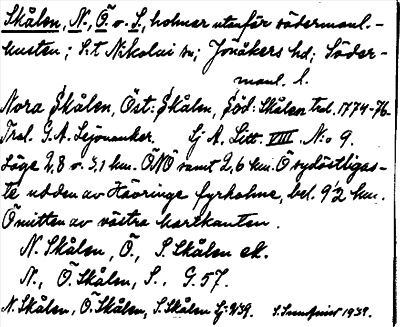 Skålen, N., Ö. o. S., holmar utanför södermanl.-
kusten; S:t Nikolai sn; Jönåkers hd; Söder-
manl. l.
Nora Skålen, Öst: Skålen, Söd: Skålen trol. 1774-76
Tral. G. A. Lejonanker. Lj A. Litt. VIII. No 9.
Läge 2,8 o. 3,1 km. ÖNÖ samt 2,6 km. Ö sydöstligas-
te udden av Hävringe fyrholme, bel. 9 1/2 km.
Ö mitten av västra kartkanten.
N. Skålen, Ö., S. Skålen ek.
N., Ö. Skålen, S., G. 57.
N. Skålen, Ö. Skålen, S. Skålen Lj: 9/39. S. 1939.